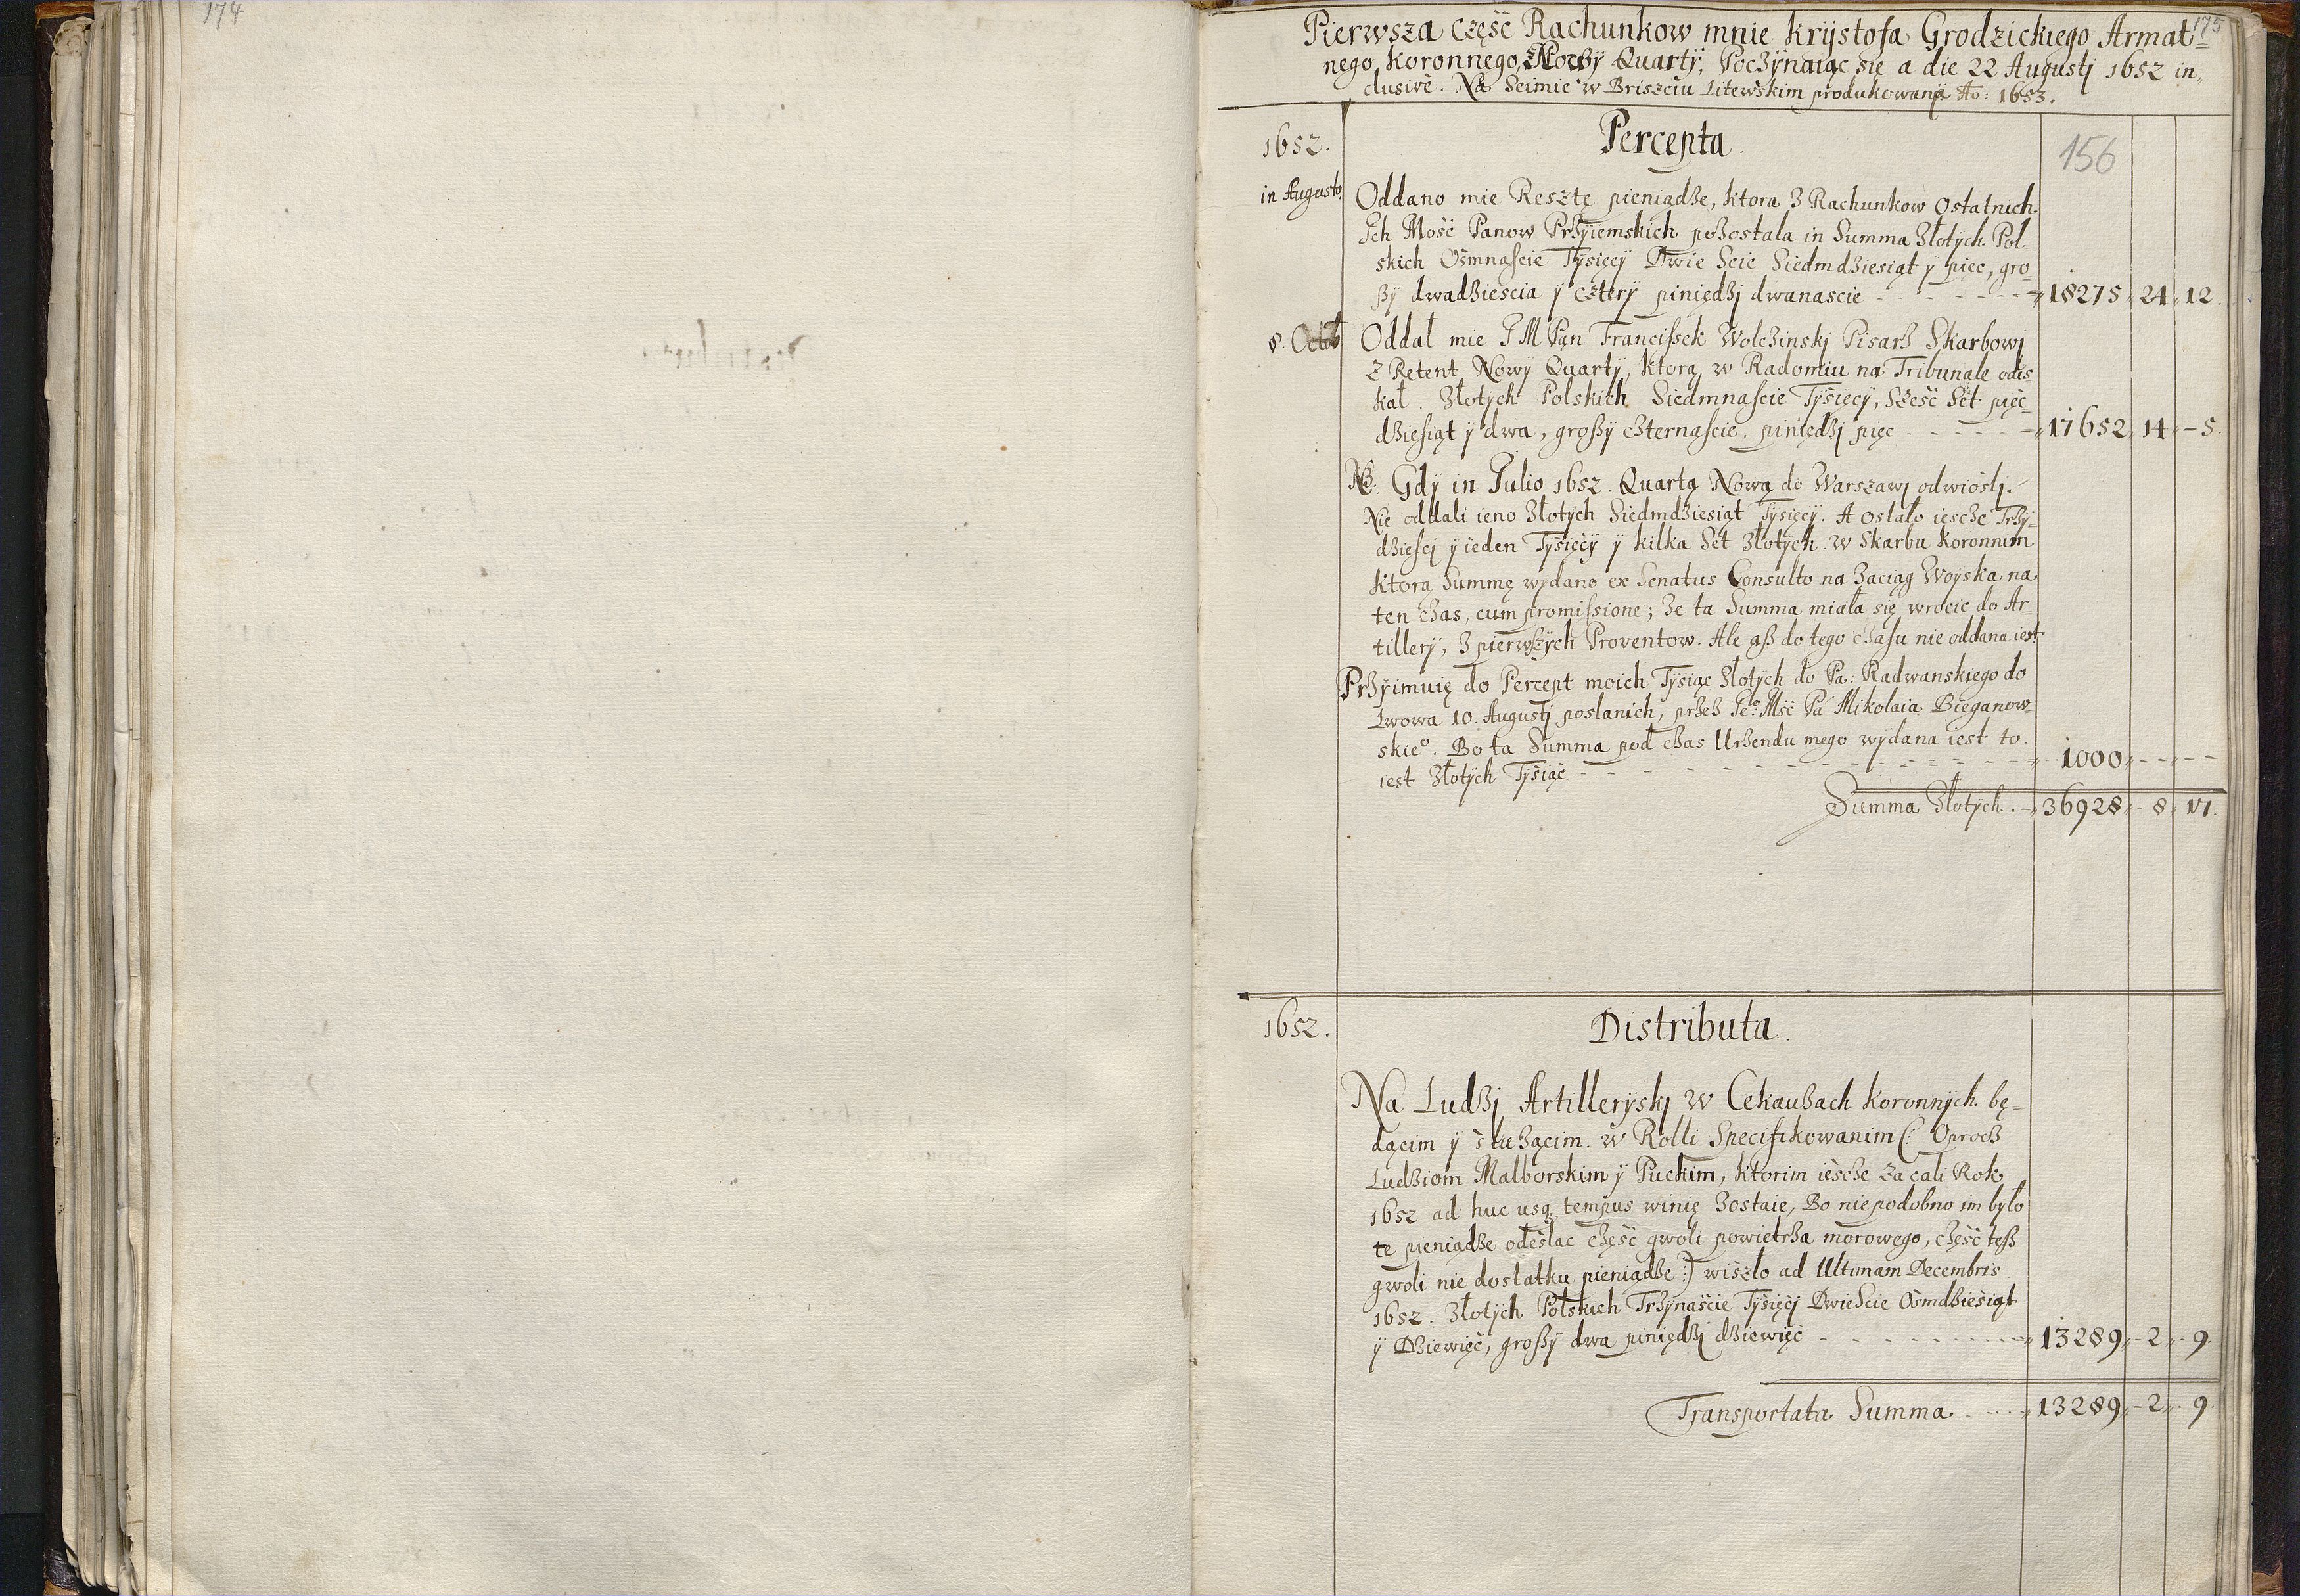 174
175
Pierwsza część Rachunkow mnie Krÿstofa Grodzickiego Armat=
nego Koronnego, z Nowÿ Quartÿ, Poczÿnaiąc się a die 22 Augustj 1652 in„
clusivè. Na Seimie w Briszciu Litewskim produkowanÿ Ao: 1653.
1652. Percepta. 156
in Augusto. Oddano mie Resztę pieniądze, ktora z Rachunkow Ostatnich
Ich Mość Panow Przÿiemskich pozostala in Summa Złotÿch Pol
skich Ośmnaście Tÿsięcÿ Dwie Scie Siedmdziesiąt ÿ pięc, gro
szÿ dwadziescia ÿ czterÿ piniędzj dwanascie - - - - - „18275„ 24„ 12.
8. Octob Oddał mie I M Pan Francissek Wolczinskj Pisarz Skarbowj
z Retent Nowÿ Quartÿ, ktorą w Radomiu na Tribunale odis
kał. Złotÿch Polskich Siedmnaście Tÿsięcÿ, Sześć Set pięć
dziesiąt ÿ dwa, groszÿ czternaście. piniędzj pięc - - - - - „17652„ 14„ - 5.
NB. Gdÿ in Julio 1652. Quartą Nową do Warszawj odwioslj.
Nie oddali ieno Złotÿch Siedmdziesiąt Tÿsięcÿ. A ostało iescze Trzÿ=
dziescj ÿ ieden Tÿsięcÿ ÿ kilka Set złotÿch w Skarbu Koronnim
ktorą Summę wÿdano ex Senatus Consulto na zaciąg Woÿska na
ten czas, cum promissione; że ta Summa miała się wrocic do Ar=
tillerÿ, z pierwszÿch Proventow. Ale asz do tego czasu nie oddana iest
Przÿimuię do Percept moich Tÿsiąc Złotÿch do Pa: Radwanskiego do
Lwowa 10. Augustj poslanich, przez Je° Msć Pa Mikolaia Bieganow=
skie°. Bo ta Summa pod czas Urzendu mego wÿdana iest to
iest Złotÿch Tÿsiąc - - - - - - - - - - 1000„ - - „ - -
Summa Złotÿch. - „36928„ - 8„ 17.
1652. Distributa.
Na Ludzj Artillerÿskj w Cekauzach Koronnÿch bę=
dącim ÿ służącim. w Rolli Specifikowanim (: Oprocz
Ludziom Malborskim ÿ Puckim, ktorim iescze za cali Rok
1652 ad huc usq tempus winię zostaie, Bo niepodobno im było
te pieniądze odeslac część gwoli powietrza morowego, część tesz
gwoli nie dostatku pieniądze:) wiszło ad Ultimam Decembris
1652. Złotÿch Polskich Trzÿnaście Tÿsięcj DwieScie Ośmdziesiąt
ÿ Dziewięć, groszÿ dwa piniędzj dziewięć - - - - - „13289„ - 2„ - 9.
Transportata Summa - - - „13289„ - 2„ - 9.